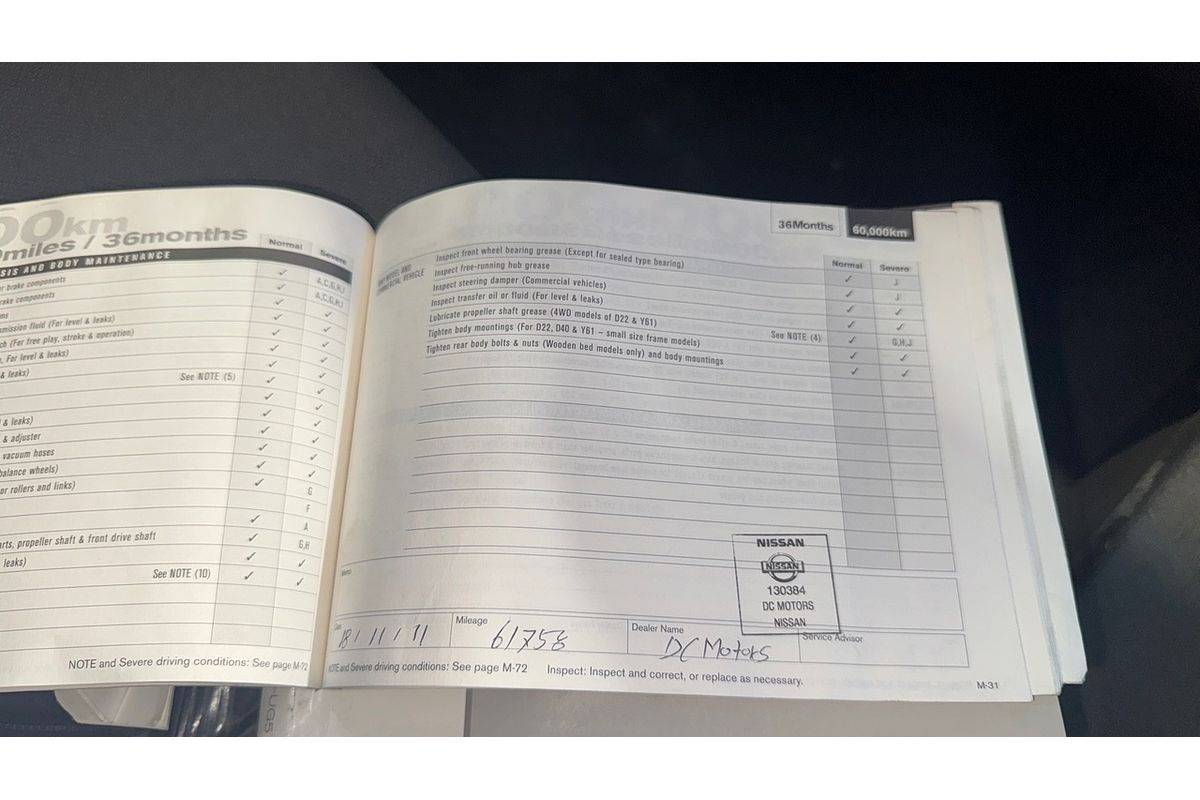 00km
miles / 36months
Normal
Severe
SIS AND BODY MAINTENANCE
r brake components ✓ A,C,G,H,J
rake components ✓ A,C,G,H,J
ms ✓ ✓
mission fluid (For level & leaks) ✓ ✓
ch (For free play, stroke & operation) ✓ ✓
, For level & leaks) ✓ ✓
& leaks) See NOTE (5) ✓ ✓
& leaks)
& adjuster
vacuum hoses
balance wheels)
or rollers and links)
G
F
A
arts, propeller shaft & front drive shaft ✓ G,H
leaks) ✓ ✓
See NOTE (10) ✓ ✓
NOTE and Severe driving conditions: See page M-72
36Months
60,000km
Normal
Severe
Inspect front wheel bearing grease (Except for sealed type bearing) ✓ J
Inspect free-running hub grease ✓ J
Inspect steering damper (Commercial vehicles) ✓ ✓
Inspect transfer oil or fluid (For level & leaks) ✓ ✓
Lubricate propeller shaft grease (4WD models of D22 & Y61) See NOTE (4) ✓ G,H,J
Tighten body mountings (For D22, D40 & Y61 – small size frame models) ✓ ✓
Tighten rear body bolts & nuts (Wooden bed models only) and body mountings ✓ ✓
Memo
NISSAN
NISSAN
130384
DC MOTORS
NISSAN
18/11/11
Mileage
61758
Dealer Name
DC Motors
Service Advisor
NOTE and Severe driving conditions: See page M-72
Inspect: Inspect and correct, or replace as necessary.
M-31
UG5